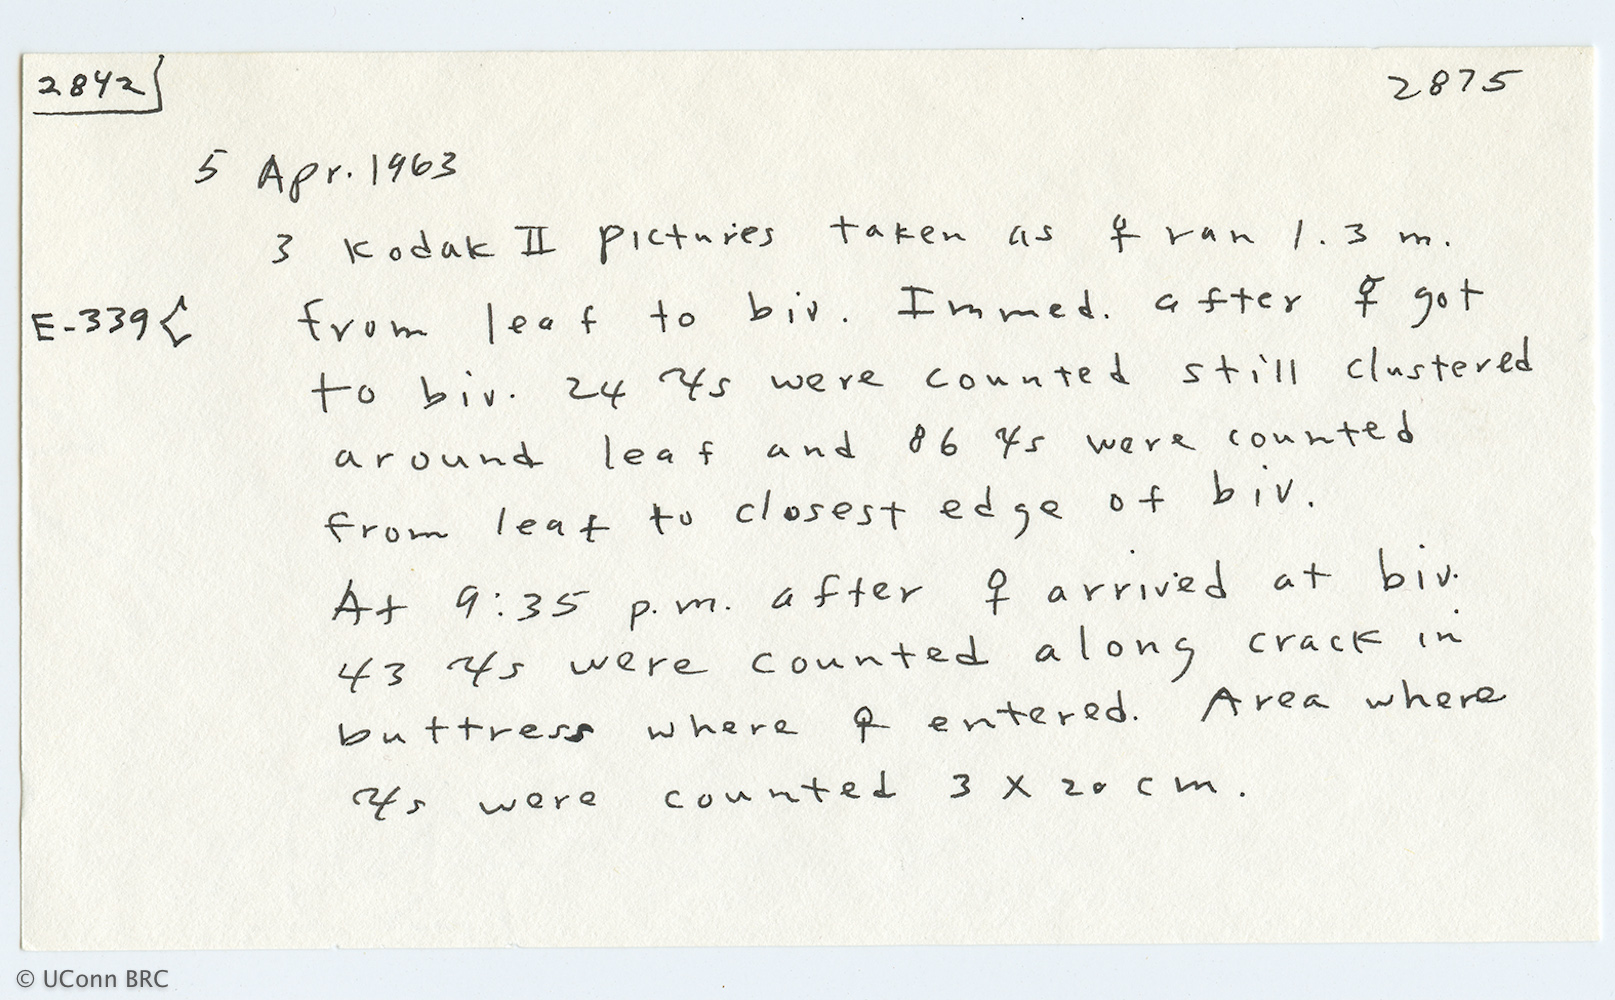 2842 2875
5 Apr. 1963
3 Kodak II pictures taken as ♀ ran 1.3 m.
E-339 { from leaf to biv. Immed. after ♀ got
to biv. 24 ☿s were counted still clustered
around leaf and 86 ☿s were counted
from leaf to closest edge of biv.
At 9:35 p.m. after ♀ arrived at biv.
43 ☿s were counted along crack in
buttress where ♀ entered. Area where
☿s were counted 3 X 20 cm.
© UConn BRC